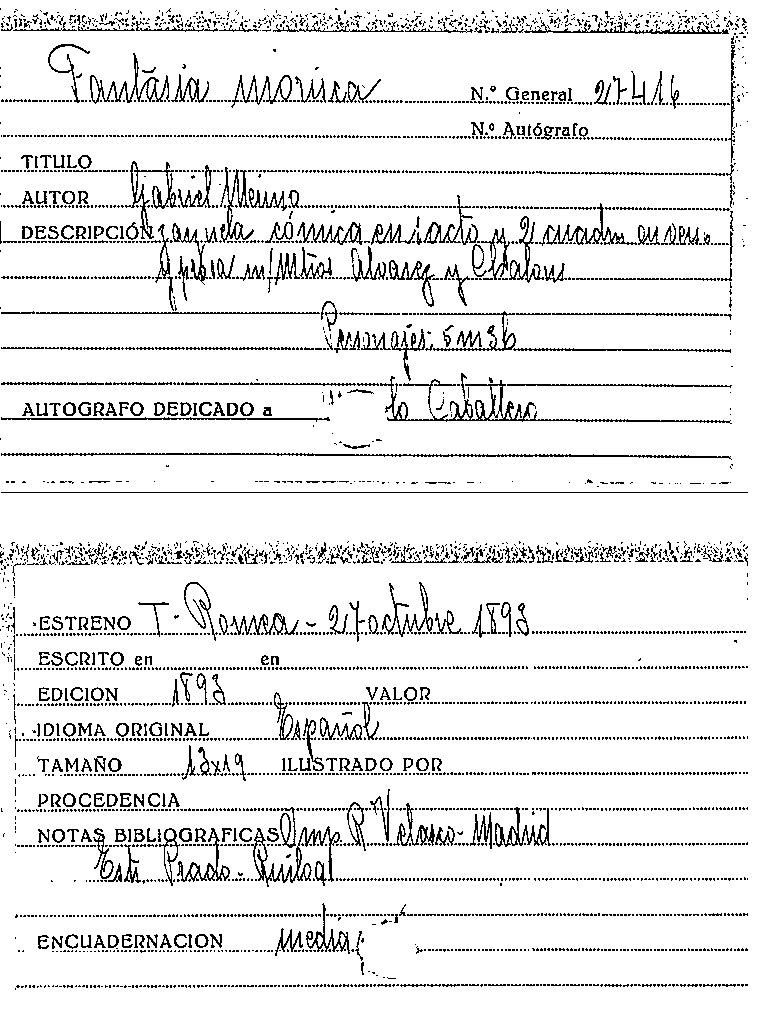 Fantasia morisca
N.º General 27416
N.º Autógrafo
TITULO
AUTOR Gabriel Merino
DESCRIPCIÓN zarzuela cómica en 1 acto y 2 cuadros en verso
y prosa m/ Mtros Alvarez y Chalons
Personajes: 5m3h
AUTOGRAFO DEDICADO a lo Caballero
ESTRENO T. Romea - 27 octubre 1893
ESCRITO en en
EDICION 1893 VALOR
IDIOMA ORIGINAL Español
TAMAÑO 13x19 ILUSTRADO POR
PROCEDENCIA
NOTAS BIBLIOGRAFICAS Imp. R Velasco - Madrid
Prado -
ENCUADERNACION media